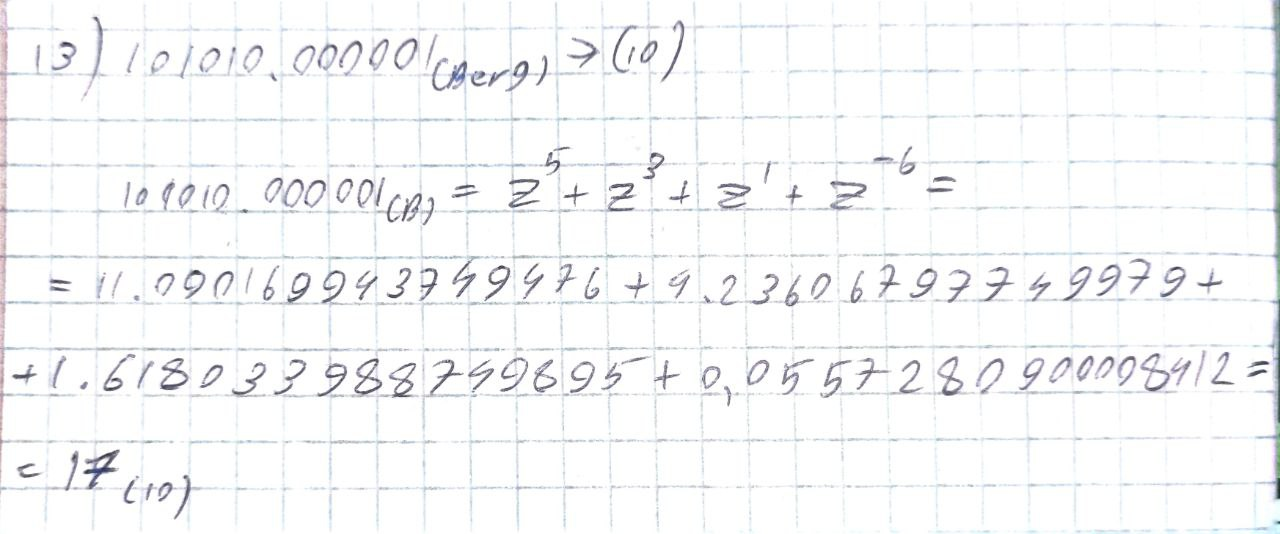 13) 101010.000001(Berg) → (10)
101010.000001(B) = z^5 + z^3 + z^1 + z^-6 =
= 11.090169943749476 + 4.236067977499979 +
+ 1.618033988749895 + 0,05572809000008412 =
= 17(10)